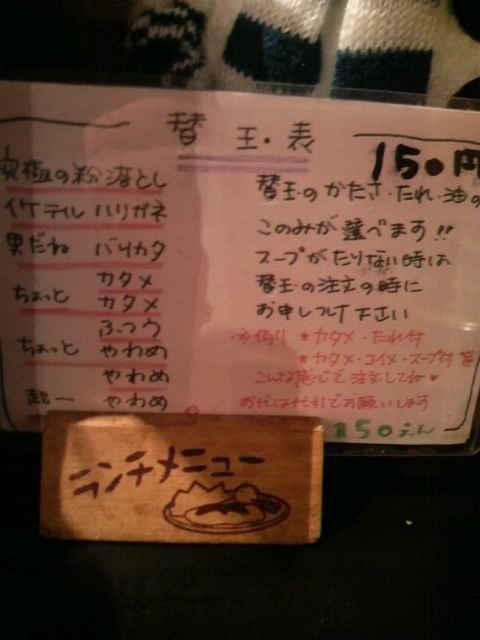 替玉・表
150円
究極の粉落とし
イケテル ハリガネ
男だね バリカタ
カタメ
ちょっと カタメ
ふつう
ちょっと やわめ
やわめ
超ー やわめ
替玉のかたさ・たれ・油の
このみが選べます!!
スープがたりない時は
替玉の注文の時に
お申しつけ下さい
※例り ★カタメ・たれ付
★カタメ・コイメ・スープ付 等
こんな感じで注文してね♥
お代は代引でお願いします
150えん
ランチメニュー